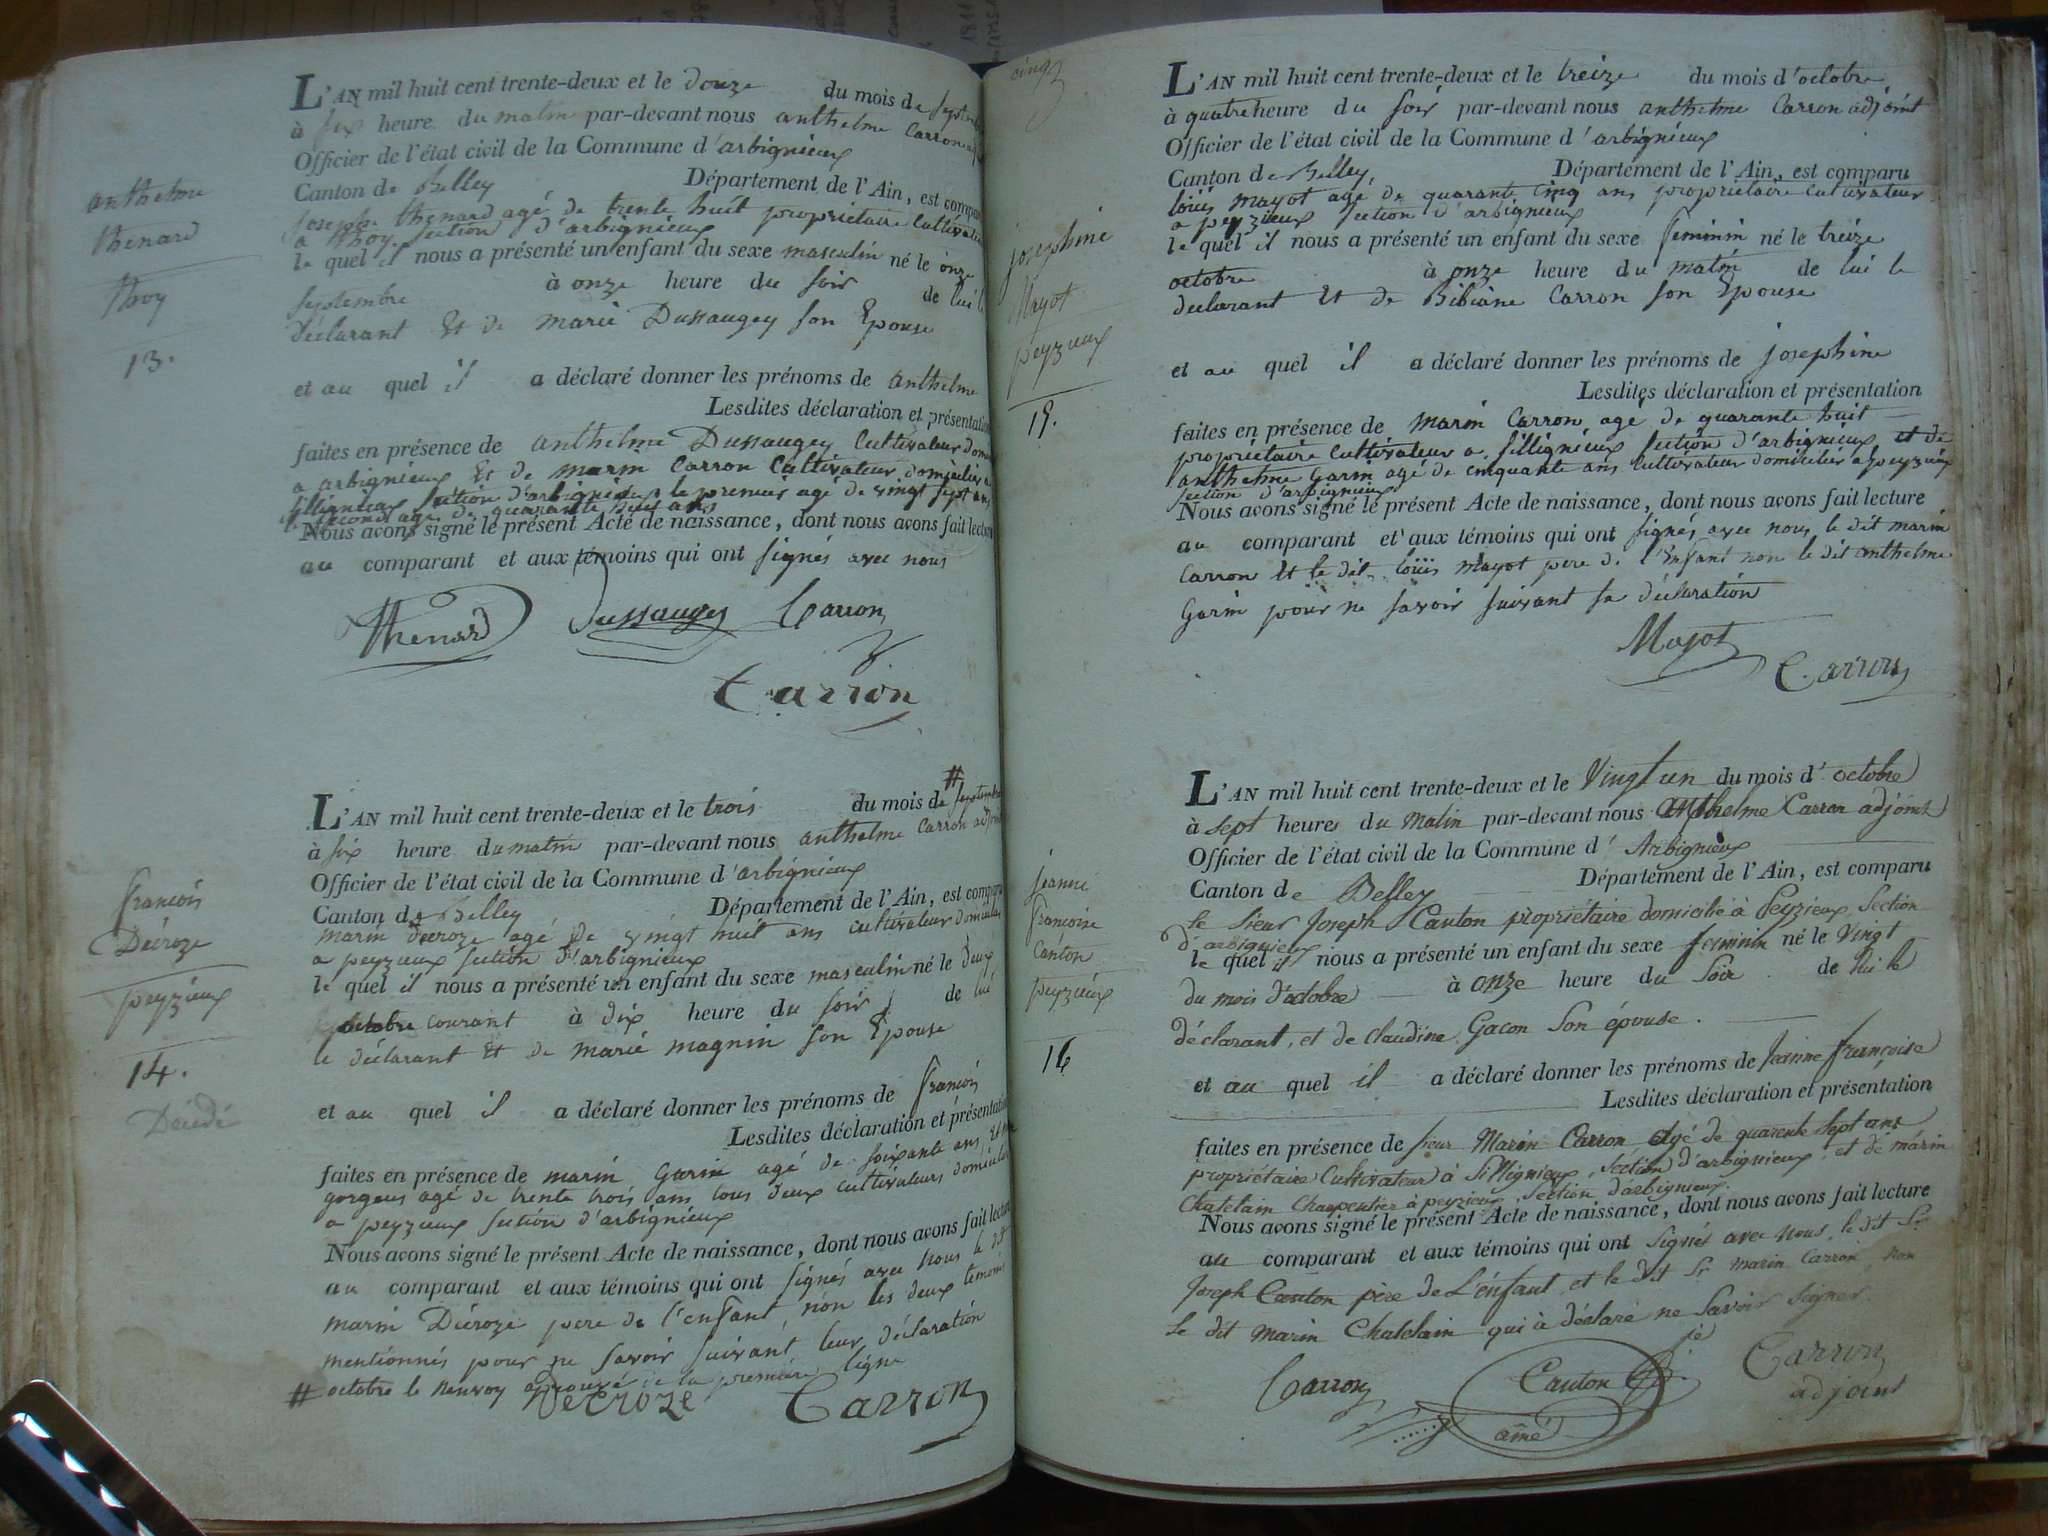 anthelme
thenard
thoy
13.
L'AN mil huit cent trente-deux et le douze du mois de septembre
à six heure du matin par-devant nous anthelme Carron
Officier de l'état civil de la Commune d'arbignieux
Canton de Belley Département de l'Ain, est comparu
joseph thenard agé de trente huit propriétaire Cultivateur
a thoy section d'arbignieux
le quel il nous a présenté un enfant du sexe masculin né le onze
septembre à onze heure du soir de lui le
declarant Et de marie Dussaugey son Epouse
et au quel il a déclaré donner les prénoms de anthelme
Lesdites déclaration et présentation
faites en présence de anthelme Dussaugey Cultivateur
a arbignieux Et de marin Carron Cultivateur domicilier a
sillignieux section d'arbignieux le premier agé de vingt sept ans
le second agé de quarante huit ans
Nous avons signé le présent Acte de naissance, dont nous avons fait lecture
au comparant et aux témoins qui ont signés avec nous
Thenard Dussaugey Carron
Carron
françois
Décroze
peyzieux
14.
Décédé
#
L'AN mil huit cent trente-deux et le trois du mois de septembre
à six heure du matin par-devant nous anthelme Carron adjoint
Officier de l'état civil de la Commune d'arbignieux
Canton de Belley Département de l'Ain, est comparu
marin décroze agé de vingt huit ans cultivateur domicilier
a peyzieux section d'arbignieux
le quel il nous a présenté un enfant du sexe masculin né le deux
octobre courant à dix heure du soir de lui
le déclarant Et de marie magnin son Epouse
et au quel il a déclaré donner les prénoms de françois
Lesdites déclaration et présentation
faites en présence de marin Garin agé de soixante ans, Et
gorgeus agé de trente trois ans tous deux cultivateurs domicilier
a peyzieux section d'arbignieux
Nous avons signé le présent Acte de naissance, dont nous avons fait lecture
au comparant et aux témoins qui ont signés avec nous le dit
marin Décroze pere de l'enfant, non les deux temoins
mentionnés pour ne savoir suivant leur déclaration
# octobre le renvoy approuvé de la première ligne
Décroze Carron
josephine
Mayot
peyzieux
15.
L'AN mil huit cent trente-deux et le treize du mois d'octobre
à quatre heure du soir par-devant nous anthelme Carron adjoint
Officier de l'état civil de la Commune d'arbignieux
Canton de Belley, Département de l'Ain, est comparu
loüis mayot agé de quarante cinq ans propriétaire cultivateur
a peyzieux section d'arbignieux
le quel il nous a présenté un enfant du sexe feminin né le treize
octobre à onze heure du matin de lui le
declarant Et de Bibiane Carron son Epouse
et au quel il a déclaré donner les prénoms de josephine
Lesdites déclaration et présentation
faites en présence de marin Carron agé de quarante huit
propriétaire Cultivateur a sillignieux section d'arbignieux et de
anthelme Garin agé de cinquante ans Cultivateur domicilier a peyzieux
section d'arbignieux
Nous avons signé le présent Acte de naissance, dont nous avons fait lecture
au comparant et aux témoins qui ont signés avec nous le dit marin
Carron Et le dit loüis mayot pere de l'Enfant non le dit anthelme
Garin pour ne savoir suivant sa déclaration
Mayot
Carron
jeanne
francoise
Canton
peyzieux
16
L'AN mil huit cent trente-deux et le Vingt un du mois d'octobre
à sept heures du Matin par-devant nous Anthelme Carron adjoint
Officier de l'état civil de la Commune d'Arbignieux
Canton de Belley Département de l'Ain, est comparu
le Sieur Joseph Canton propriétaire domicilié à Peyzieux, Section
d'arbignieux
le quel il nous a présenté un enfant du sexe feminin né le Vingt
du mois d'octobre à onze heure du Soir de lui le
déclarant, et de Claudine Gacon Son épouse.
et au quel il a déclaré donner les prénoms de Jeanne françoise
Lesdites déclaration et présentation
faites en présence de sieur Marin Carron Agé de quarente Sept ans
propriétaire Cultivateur à Sillignieux, Séction d'arbignieux et de marin
Chatelain Charpentier à peyzieux, Section d'arbignieux.
Nous avons signé le présent Acte de naissance, dont nous avons fait lecture
au comparant et aux témoins qui ont Signés avec Nous, le dit Sr
Joseph Canton père de L'énfant et le dit Sr Marin Carron Non
Le dit Marin Chatelain qui à déclaré ne Savoir Signer.
Carron Canton jé Carron
aîné adjoint